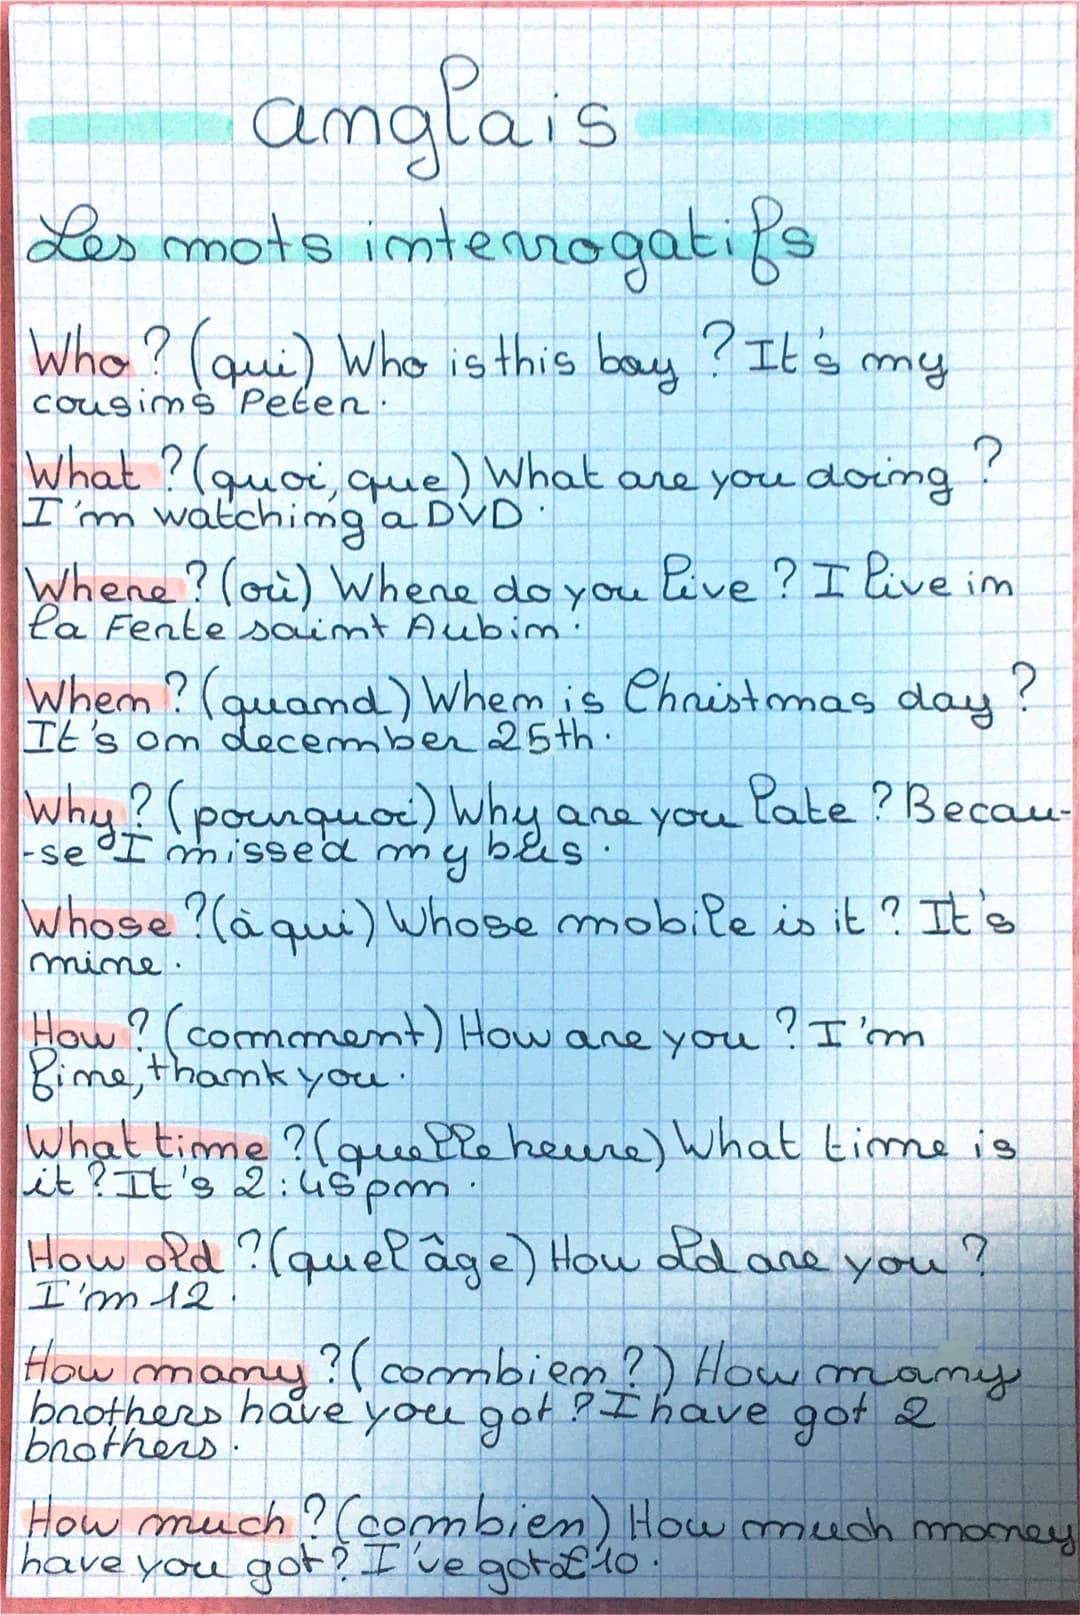 anglais
Les mots interrogatifs
Who ? (qui) Who is this boy ? It's my
cousins Peter.
What ? (quoi, que) What are you doing ?
I'm watching a DVD.
Where ? (où) Where do you live ? I live in
la Ferte saint Aubin.
When ? (quand) When is Christmas day ?
It's on december 25th.
Why ? (pourquoi) Why are you late ? Becau-
-se I missed my bus.
Whose ? (à qui) Whose mobile is it ? It's
mine.
How ? (comment) How are you ? I'm
fine, thank you.
What time ? (quelle heure) What time is
it ? It's 2:45pm.
How old ? (quel âge) How old are you ?
I'm 12.
How many ? (combien ?) How many
brothers have you got ? I have got 2
brothers.
How much ? (combien) How much money
have you got ? I've got £10.